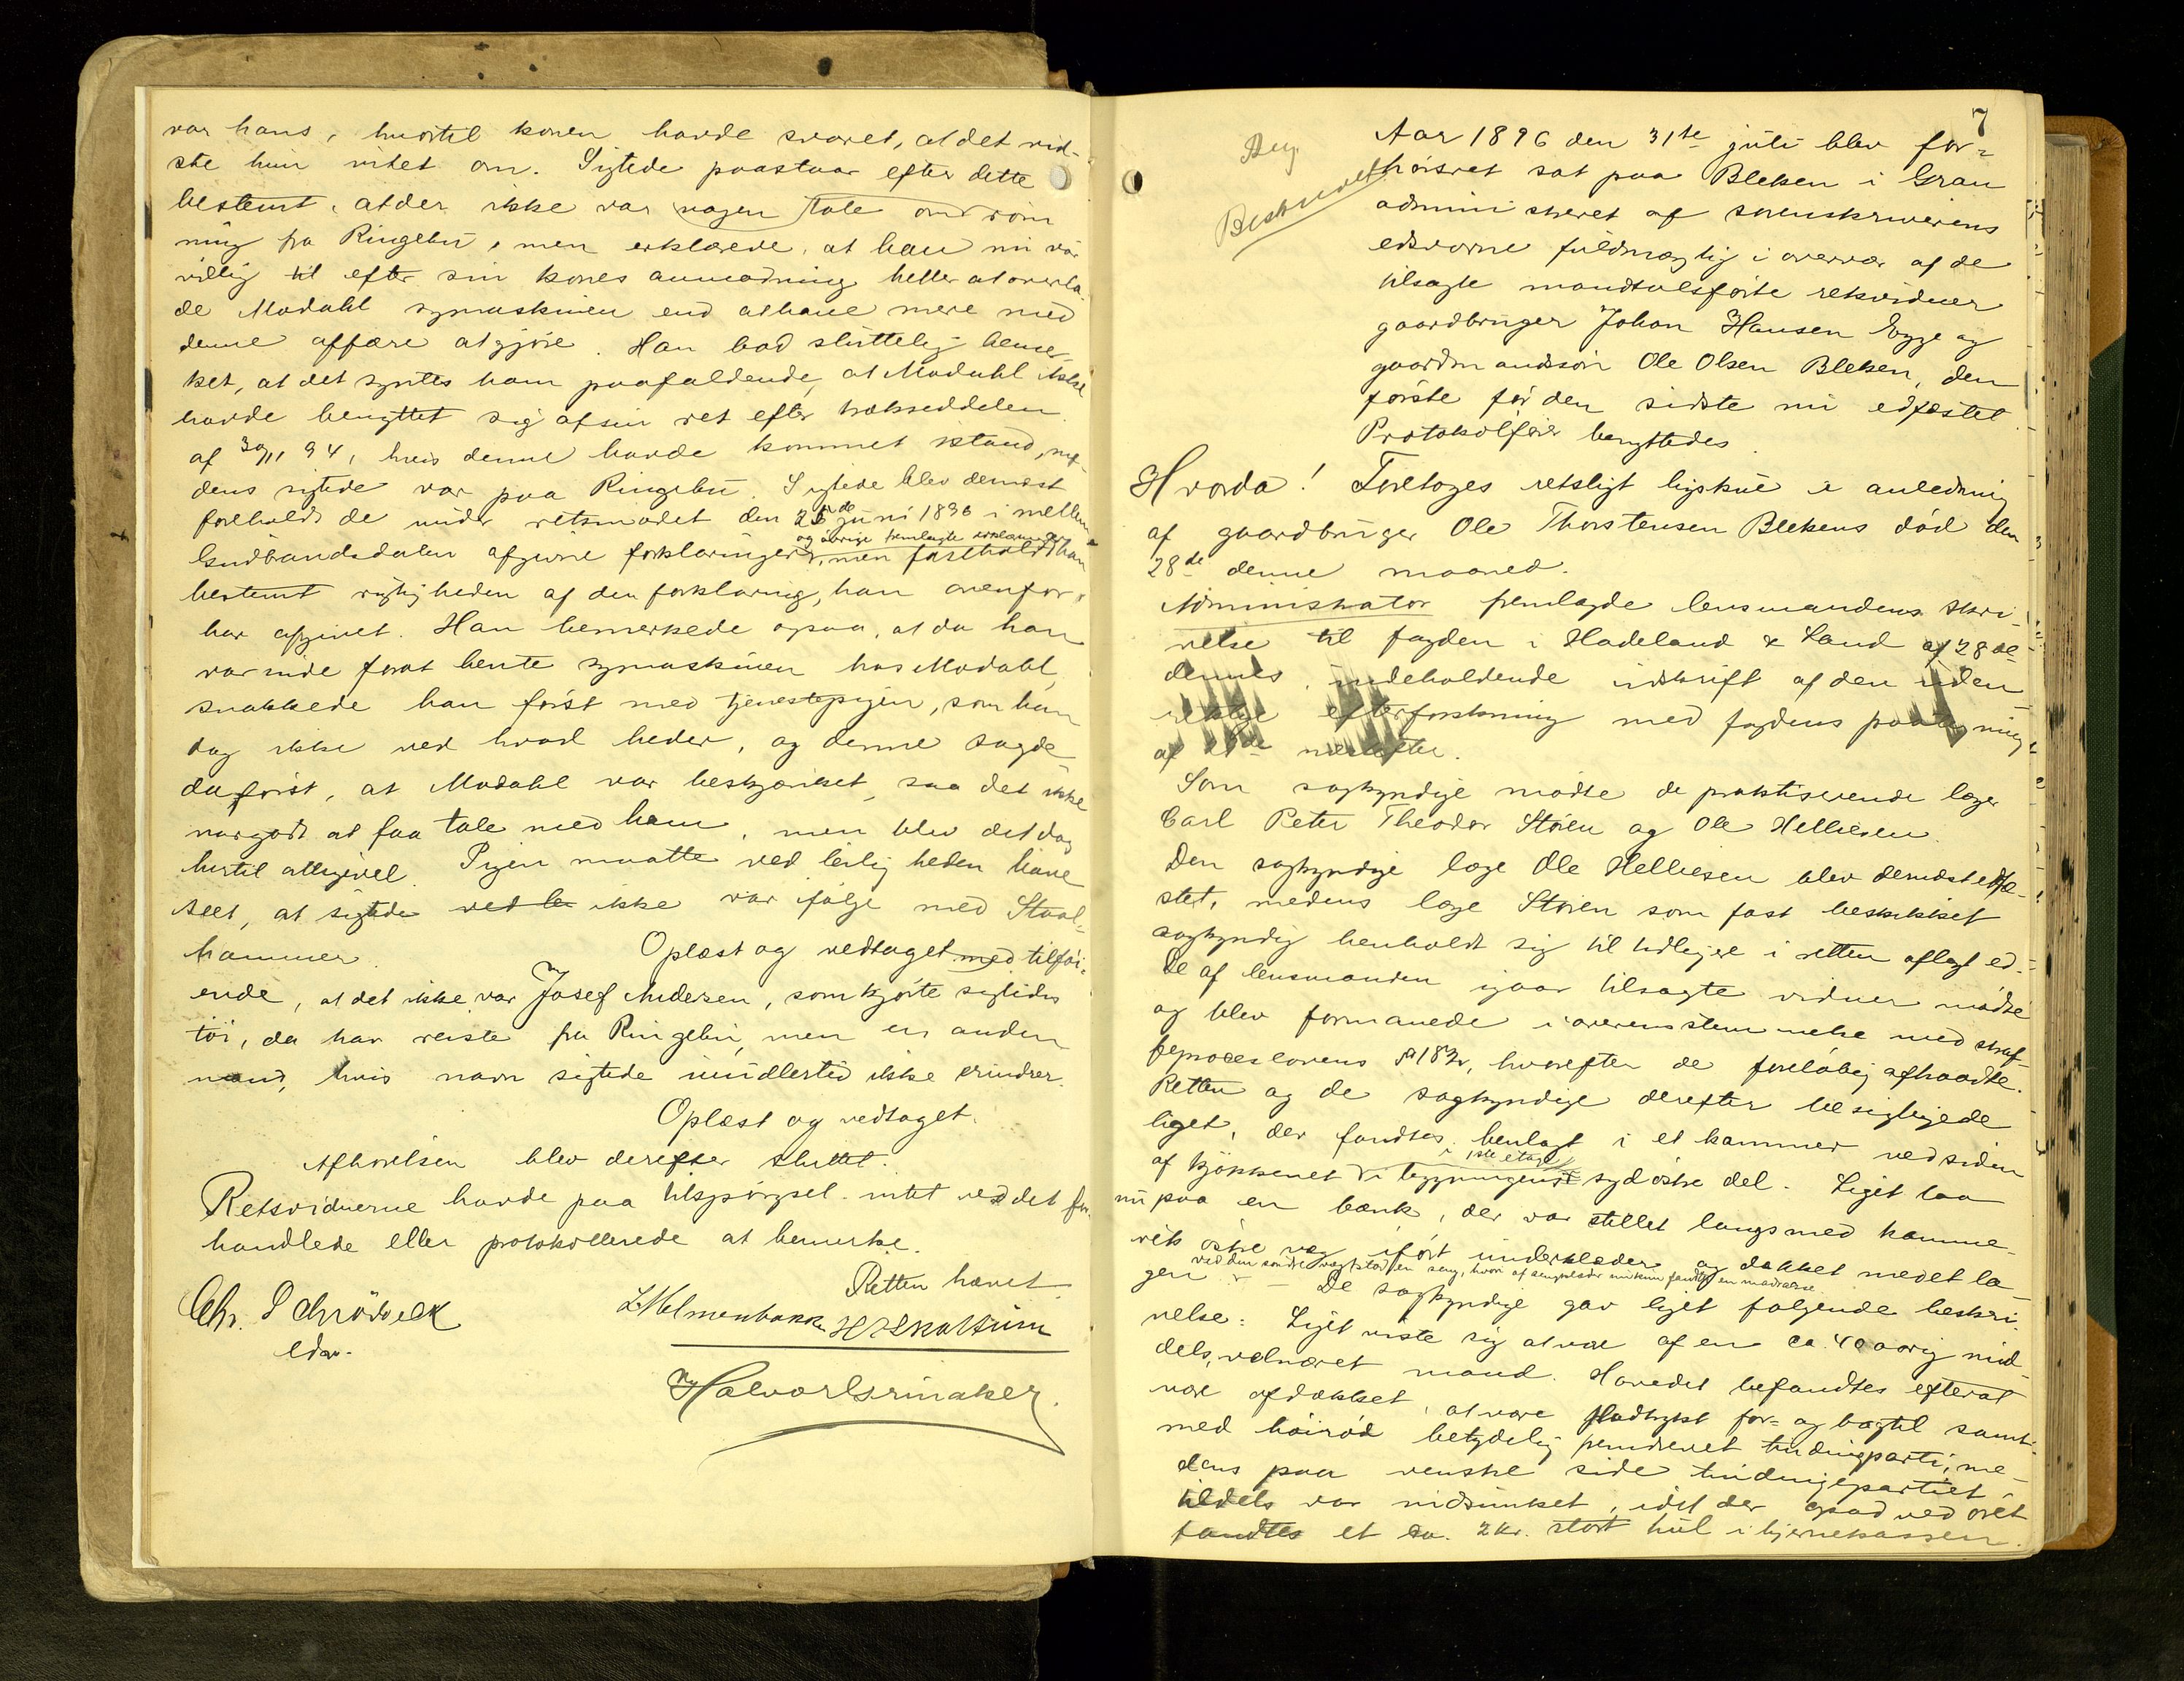 var hans, hvortil konen havde svaret, at det vid-
ste hun intet om. Sigtede paastaar efter dette
bestemt, at der ikke var nogen tale om røm
ning fra Ringebu, men erklærede, at han nu var
villig til efter sin kones anmodning heller at overla-
de Modahl symaskinen end at have mere med
denne affære at gjøre. Han bad sluttelig bemer-
ket, at det syntes ham paafaldende, at Modahl ikke
havde benyttet sig af sin ret efter trækseddelen
af 30/11 94, hvis denne havde kommet istand, me-
dens sigtede var paa Ringebu. Sigtede blev dernæst
foreholdt de under retsmødet den 26de juni 1896 i mellem
og øvrige fremlagte erklæringer
Gudbrandsdalen afgivne forklaringer, men fastholdt han
bestemt rigtigheden af den forklaring, han ovenfor
har afgivet. Han bemerkede ogsaa, at da han
var inde forat hente symaskinen hos Modahl,
snakkede han først med tjenestepigen, som han
dog ikke ved hvad heder, og denne sagde
da først, at Modahl var beskjænket, saa det ikke
var godt at faa tale med ham, men blev det dog
hertil alligevel. Pigen maatte ved leiligheden have
seet, at sigtede ikke var ifølge med Staal-
hammer. Oplæst og vedtaget med tilføi-
ende, at det ikke var Josef Andersen, som kjørte sigtedes
tøi, da han reiste fra Ringebu, men en anden
mand, hvis navn sigtede imidlertid ikke erindrer.
Oplæst og vedtaget.
Afhørelsen blev derefter sluttet.
Retsvidnerne havde paa tilspørgsel intet ved det for-
handlede eller protokollerede at bemerke.
Retten hævet.
Chr. Schrøder
edsv.
7
Aar 1896 den 31te juli blev for-
Beg.
Beskrevet
hørsret sat paa Bleken i Gran
administreret af sorenskriverens
edsvorne fuldmægtig i overvær af de
tilsagte mandtalsførte retsvidner
gaardbruger Johan Hansen Egge og
gaardmandssøn Ole Olsen Bleken, den
første før den sidste nu edfæstet.
Protokolfører benyttedes.
Hvorda! Foretoges retsligt ligskue i anledning
af gaardbruger Ole Thorstensen Blekens død den
28de denne maaned.
Administrator fremlagde lensmandens skri-
velse til fogden i Hadeland & Land af 28de
dennes, indeholdende udskrift af den uden
retslige efterforskning med fogdens paategning
af næstefter.
Som sagkyndige mødte de praktiserende læger
Carl Peter Theodor Støren og Ole Helliesen.
Den sagkyndige læge Ole Helliesen blev dernæst edfæ-
stet, medens læge Støren som fast beskikket
sagkyndig henholdt sig til tidligere i retten aflagt ed.
De af lensmanden igaar tilsagte vidner mødte
og blev formanede i overensstemmelse med straf-
feproceslovens § 182, hvorefter de foreløbig aftraadte.
Retten og de sagkyndige derefter besigtigede
liget, der fandtes henlagt i et kammer ved siden
i 1ste etage
af kjøkkenet i bygningens sydøstre del. Liget laa
nu paa en bænk, der var stillet langs med kamme-
rets østre væg iført underklæder og dækket med et la-
ved den søndre væg stod en seng, hvori af sengklæder nu kun fandtes en madrasse
gen. – De sagkyndige gav liget følgende beskri-
velse: Liget viste sig at være af en ca. 40 aarig mid-
dels, velnæret mand. Hovedet befandtes efterat
være afdækket, at være fladtrykt for- og bagtil samt
med høirød betydelig fremdrevet tindingparti, me-
dens paa venstre side tindingepartiet
tildels var nidsunket, idet der opad ved øret
fandtes et ca. 2 kr. stort hul i hjernekassen.